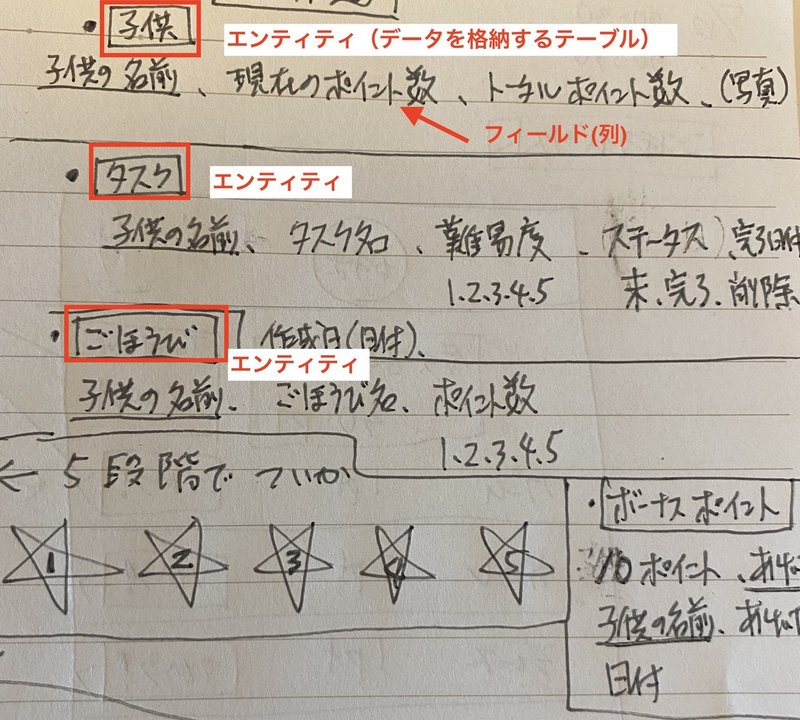 ・子供 エンティティ（データを格納するテーブル）
子供の名前、現在のポイント数、トータルポイント数、(写真)
フィールド(列)
・タスク エンティティ
子供の名前、タスク名、難易度、(ステータス)、完了日付
1.2.3.4.5 未、完了、削除
・ごほうび 作成日(日付)、
エンティティ
子供の名前、ごほうび名、ポイント数
1.2.3.4.5
← 5段階で ついか
1 2 3 4 5
・ボーナスポイント
10ポイント、
子供の名前、
日付